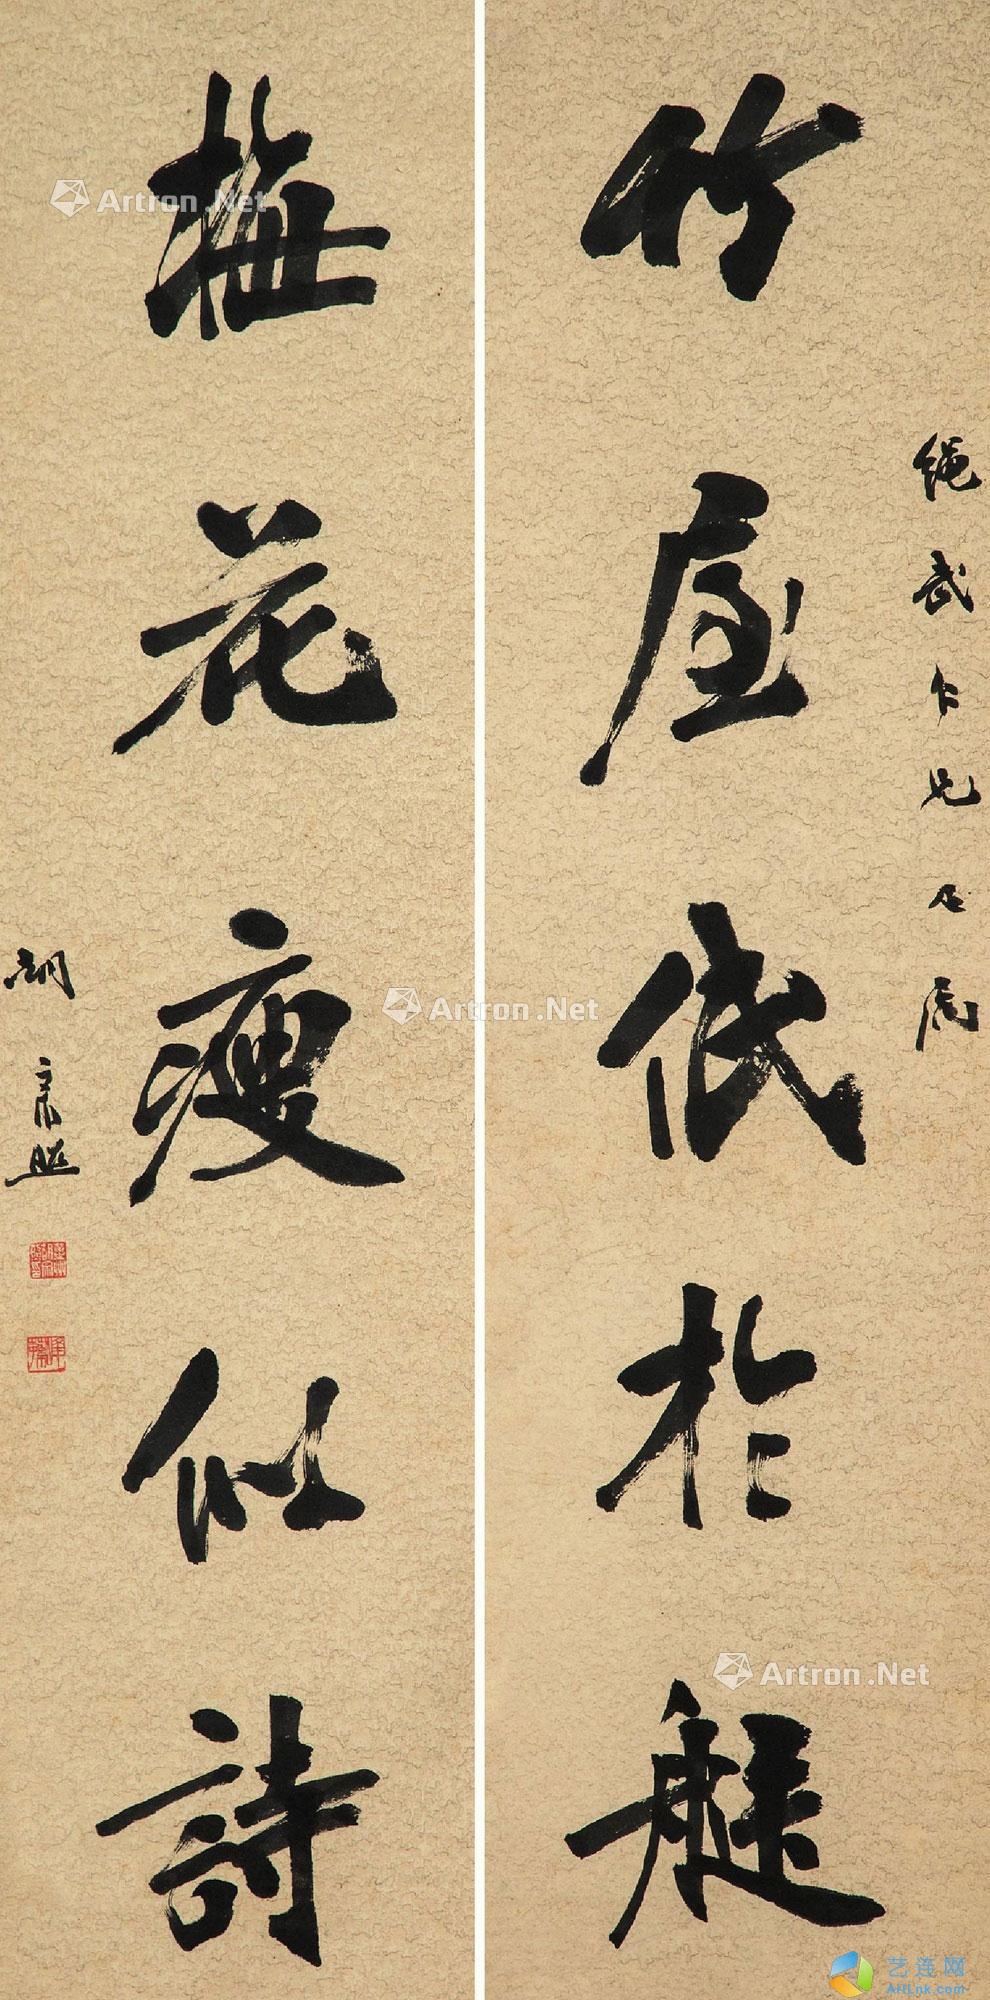 繩武仁兄正屬
竹屋低於艇
梅花瘦似詩
胡宗照
Artron.Net
Artron.Net
Artron.Net
艺连网
ArtLnk.com